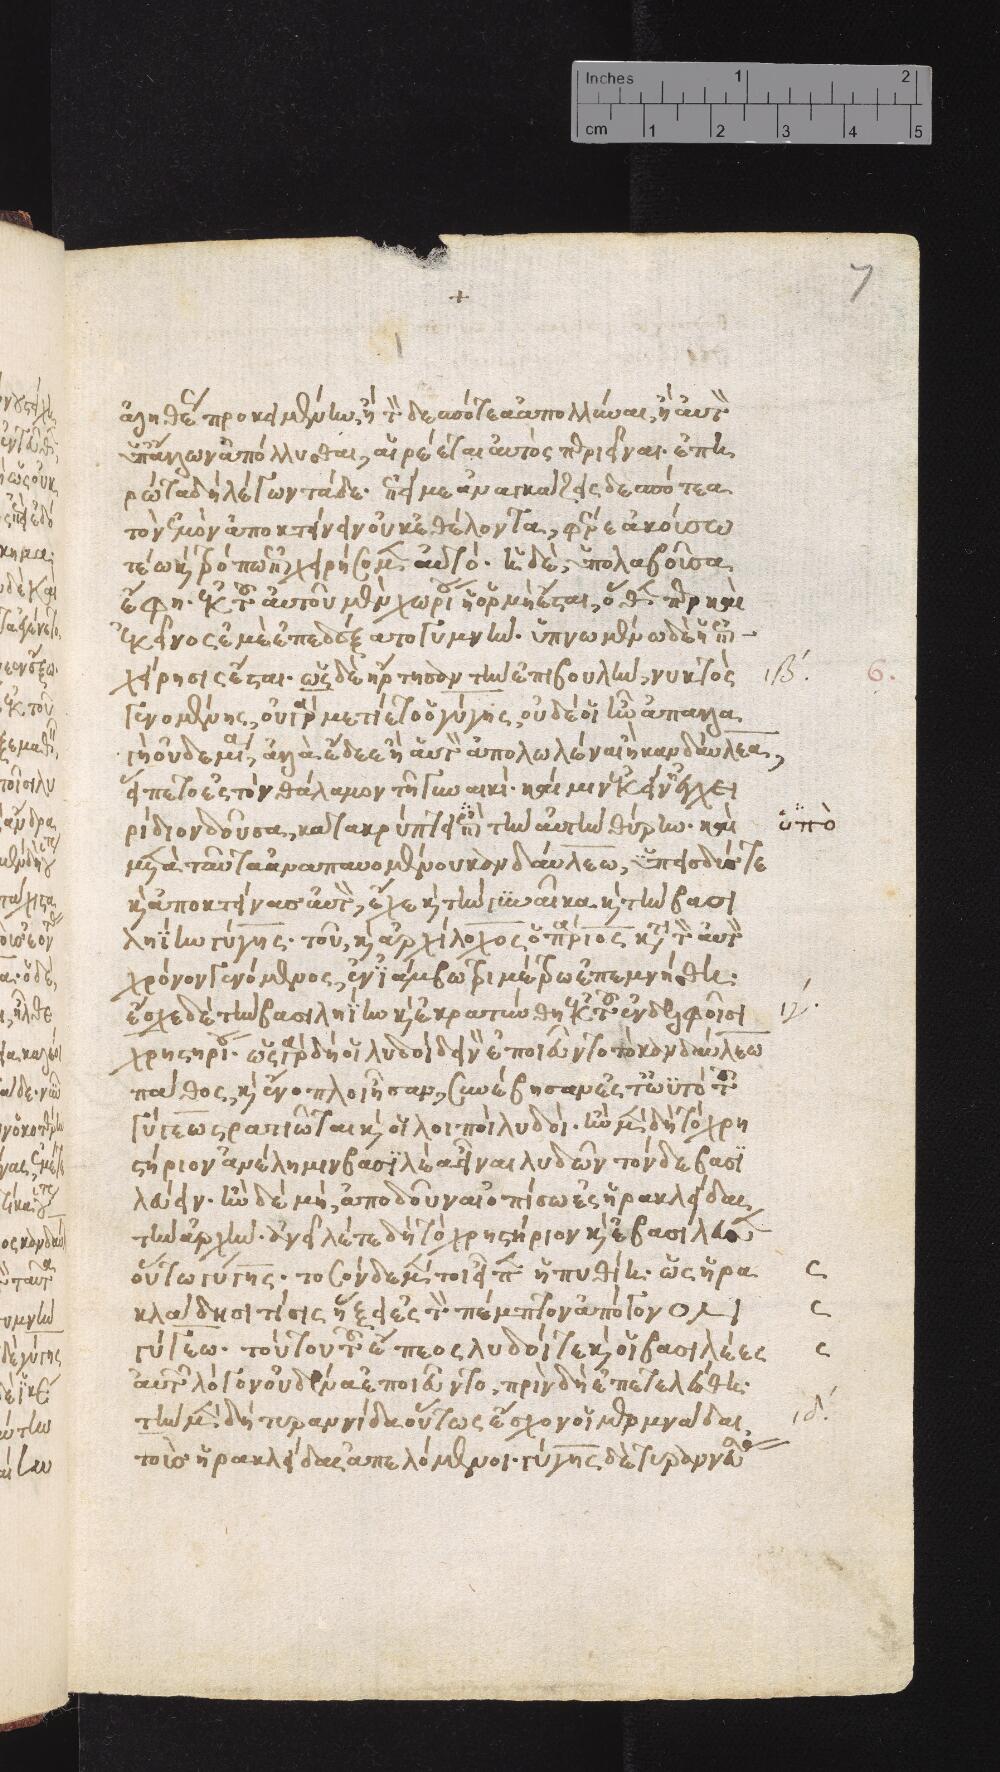 7
+
ἀληθέως προκειμένην, ἢ τὸν δεσπότεα ἀπολλύναι, ἢ αὐτὸν
ὑπ' ἄλλων ἀπόλλυσθαι, αἱρέεται αὐτὸς περιεῖναι. ἐπει
ρώτα δὴ λέγων τάδε. ἐπεί με ἀναγκάζεις δεσπότεα
τὸν ἐμὸν ἀποκτείνειν οὐκ ἐθέλοντα, φέρε ἀκούσω
τέω καὶ τρόπω ἐπιχειρήσομεν αὐτῶ. ἡ δὲ, ὑπολαβοῦσα
ἔφη. ἐκ τοῦ αὐτοῦ μὲν χωρίου ἡ ὁρμὴ ἔσται, ὅθεν περ καὶ
ἐκεῖνος ἐμὲ ἐπεδέξατο γυμνήν. ὑπνωμένω δὲ ἡ ἐπι-
χείρησις ἔσται. ὡς δὲ ἤρτησον τὴν ἐπιβουλὴν, νυκτὸς ιβ΄. 6.
γενομένης, οὐ γάρ μετίετο ὁ γύγης, οὐδέ οἱ ἦν ἀπαλλα
γὴ οὐδεμία, ἀλλὰ ἔδεε ἢ αὐτὸν ἀπολωλέναι ἢ κανδαύλεα,
εἵπετο ἐς τὸν θάλαμον τῆ γυναικί. καί μιν ἐκείνη ἐγχει
ρίδιον δοῦσα, κατακρύπτει ἐπὶ τὴν αὐτὴν θύρην. καὶ ὑπὸ
μετὰ ταῦτα ἀναπαυομένου κανδαύλεω, ὑπεισδύς τε
καὶ ἀποκτείνας αὐτὸν, ἔσχε καὶ τὴν γυναῖκα καὶ τὴν βασι
ληΐην γύγης. τοῦ, καὶ ἀρχίλοχος ὁ πάριος κατὰ τὸν αὐτὸν
χρόνον γενόμενος, ἐν ἰάμβω τριμέτρω ἐπεμνήσθη.
ἔσχε δὲ τὴν βασιληΐην καὶ ἐκρατύνθη ἐκ τοῦ ἐν δελφοῖσι ιγ΄.
χρηστηρίου. ὡς γὰρ δὴ οἱ λυδοὶ δεινὸν ἐποιεῦντο τὸ κανδαύλεω
πάθος, καὶ ἐν ὅπλοισι ἦσαν, συνέβησαν ἐς τὠυτὸ οἵ τε τοῦ
γύγεω στασιῶται καὶ οἱ λοιποὶ λυδοί. ἢν μὲν δὴ τὸ χρη
στήριον ἀνέλη μιν βασιλέα εἶναι λυδῶν τόνδε βασι
λεύειν. ἢν δὲ μὴ, ἀποδοῦναι ὀπίσω ἐς ἡρακλείδας
τὴν ἀρχήν. ἀνεῖλέ τε δὴ τὸ χρηστήριον καὶ ἐβασίλευσε
οὕτω γύγης. τοσόνδε μέντοι εἶπε ἡ πυθίη. ὡς ἡρα ς
κλείδησι τίσις ἥξει ἐς τὸν πέμπτον ἀπόγονον ς
γύγεω. τούτου τοῦ ἔπεος λυδοί τε καὶ οἱ βασιλέες ς
αὐτῶν λόγον οὐδένα ἐποιεῦντο, πρὶν δὴ ἐπετελέσθη.
τὴν μὲν δὴ τυραννίδα οὕτως ἔσχον οἱ μερμνάδαι ιδ΄.
τοὺς ἡρακλείδας ἀπελόμενοι. γύγης δὲ τυραννεύσας